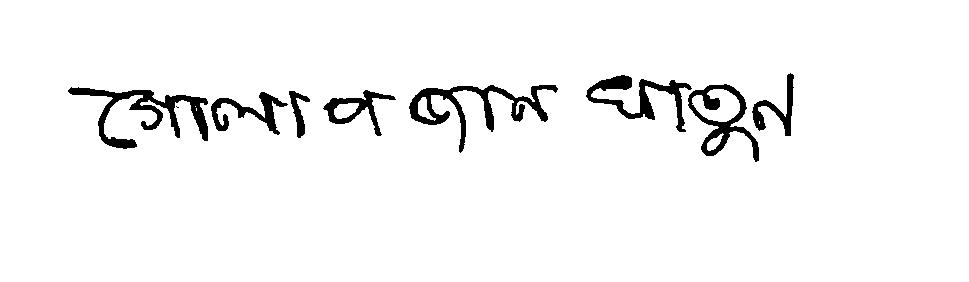 গোলাপজান খাতুন